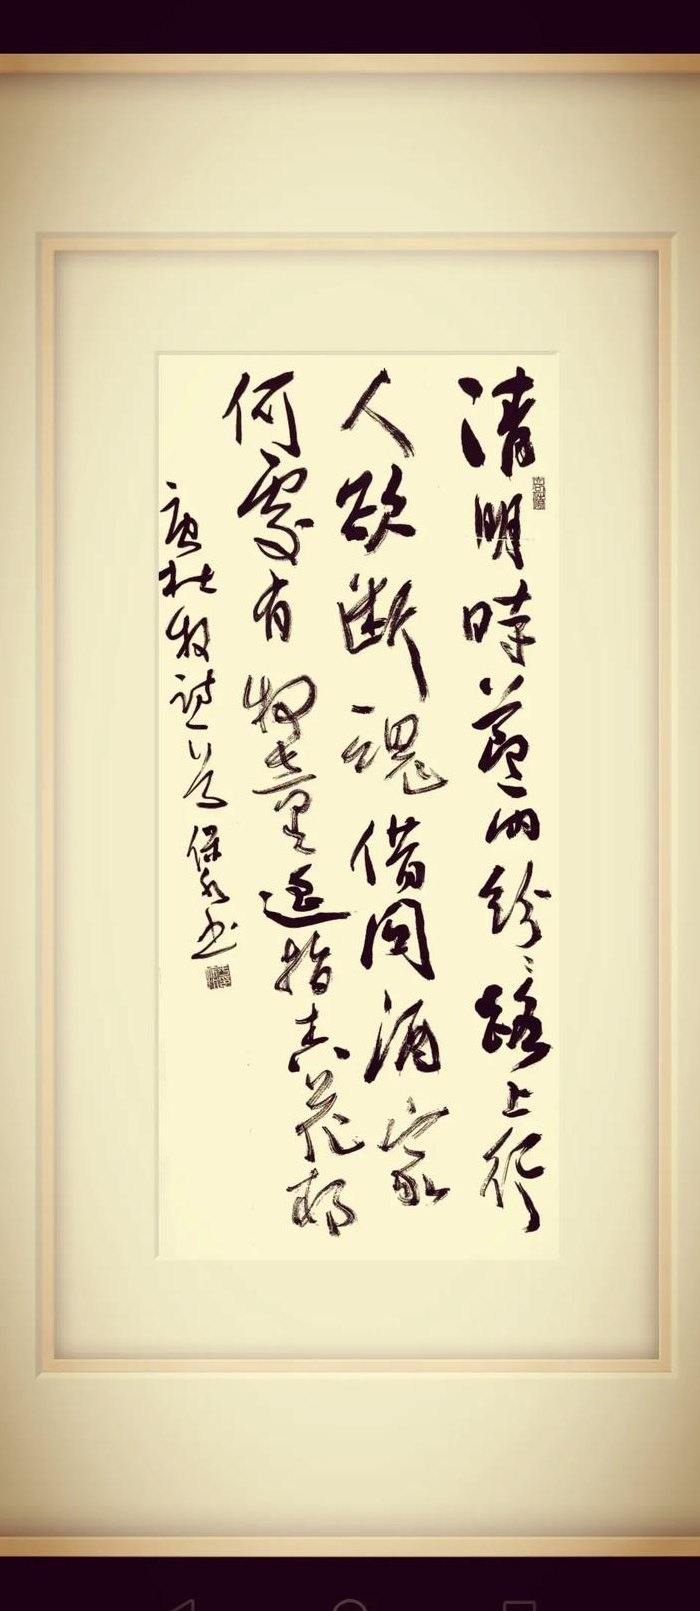 清明時節雨紛〻路上行
人欲斷魂借問酒家
何處有牧童遥指杏花村
唐杜牧詩一首保书